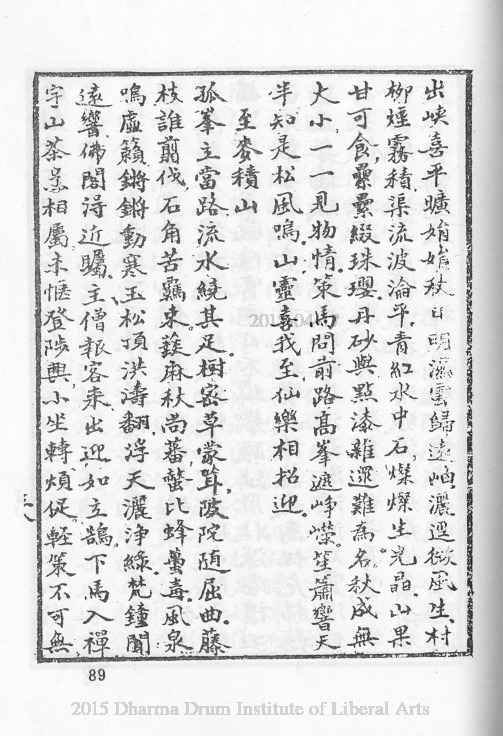 出峽喜平曠娟娟秋日明瀛雲歸遠岫灑逕微風生村
柳煙霧積渠流波淪平青紅水中石燦燦生光晶山果
甘可食纍纍綴珠瓔丹砂與點漆雜遝難為名秋成無
大小一一見物情策馬問前路高峯遮崢嶸笙簫響天
半知是松風鳴山靈喜我至仙樂相招迎
至麥積山
孤峯立當路流水繞其足樹密草蒙茸陂院随屈曲藤
枝誰翦伐石角苦羈束蓬麻秋尚蕃螫比蜂蠆毒風泉
鳴虛籟鏘鏘動寒玉松頂洪濤翻浮天灑淨綠梵鐘聞
遠響佛閣淂近矚主僧報客来出迎如立鵠下馬入禪
宇山茶呈相屬未愜登陟興小坐轉煩促輕策不可無
89
2015 Dharma Drum Institute of Liberal Arts